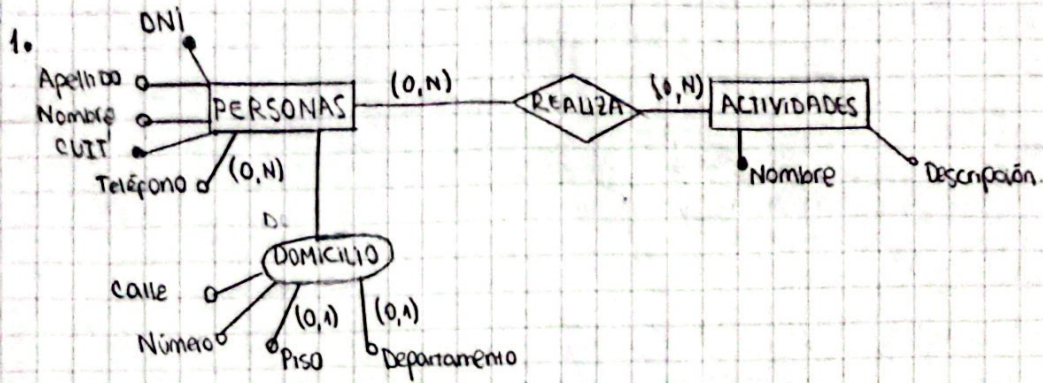 1.
DNI
Apellido
Nombre
CUIT
Teléfono
(0,N)
PERSONAS
(0,N)
REALIZA
(0,N)
ACTIVIDADES
Nombre
Descripción.
DOMICILIO
Calle
Número
(0,1)
Piso
(0,1)
Departamento